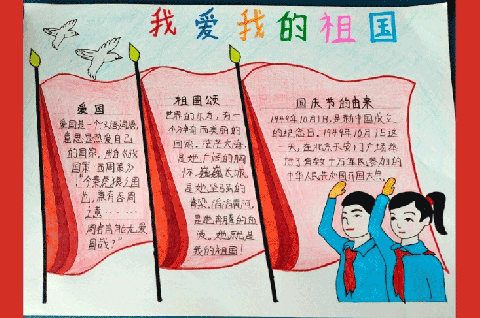 我爱我的祖国
爱国
爱国是一个汉语词语,
意思是热爱自己
的国家。出自《战
国策·西周策》
"
周君岂能无爱
国哉?"
祖国颂
世界的东方,有一
个神奇而美丽的
国家。茫茫大海,
是她广阔的胸
怀。巍巍长城,
是她坚强的
脊梁。滔滔黄河,
是她奔腾的血
液。她就是
我们的祖国!
国庆节的由来
1949年10月1日,是新中国成立
的纪念日。1949年10月1日这
一天,在北京天安门广场举
行了有数十万军民参加的
中华人民共和国开国大典。